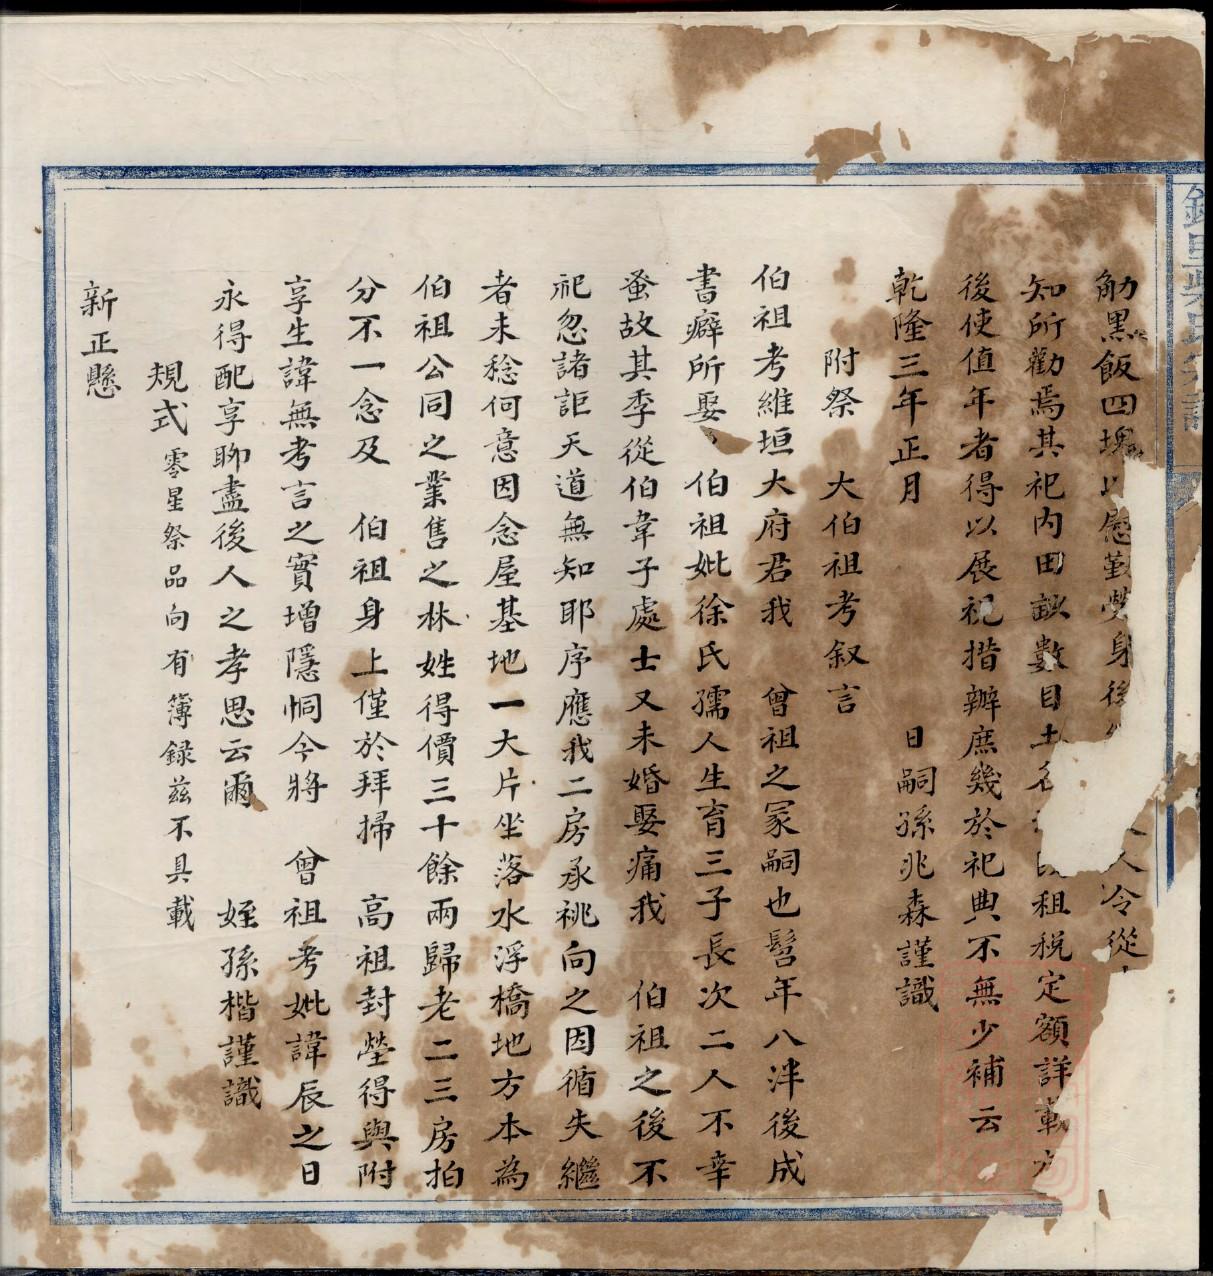 觔黑飯四塊以慰勤勞身後
人令從
知所勸焉其祀内田畝數目土名
租税定額詳載
後使值年者得以展祀措辦庶幾於祀典不無少補云
乾隆三年正月 日嗣孫兆森謹識
附祭 大伯祖考叙言
伯祖考維垣大府君我 曾祖之冡嗣也髫年八泮後成
書癖所娶 伯祖妣徐氏孺人生育三子長次二人不幸
蚤故其季從伯韋子處士又未婚娶痛我 伯祖之後不
祀忽諸詎天道無知耶序應我二房承祧向之因循失繼
者未稔何意因念屋基地一大片坐落水浮橋地方本為
伯祖公同之業售之林姓得價三十餘兩歸老二三房拍
分不一念及 伯祖身上僅於拜掃 高祖封塋得與附
享生諱無考言之實增隱恫今將 曾祖考妣諱辰之日
永得配享聊盡後人之孝思云爾 姪孫楷謹識
規式零星祭品向有簿録兹不具載
新正懸